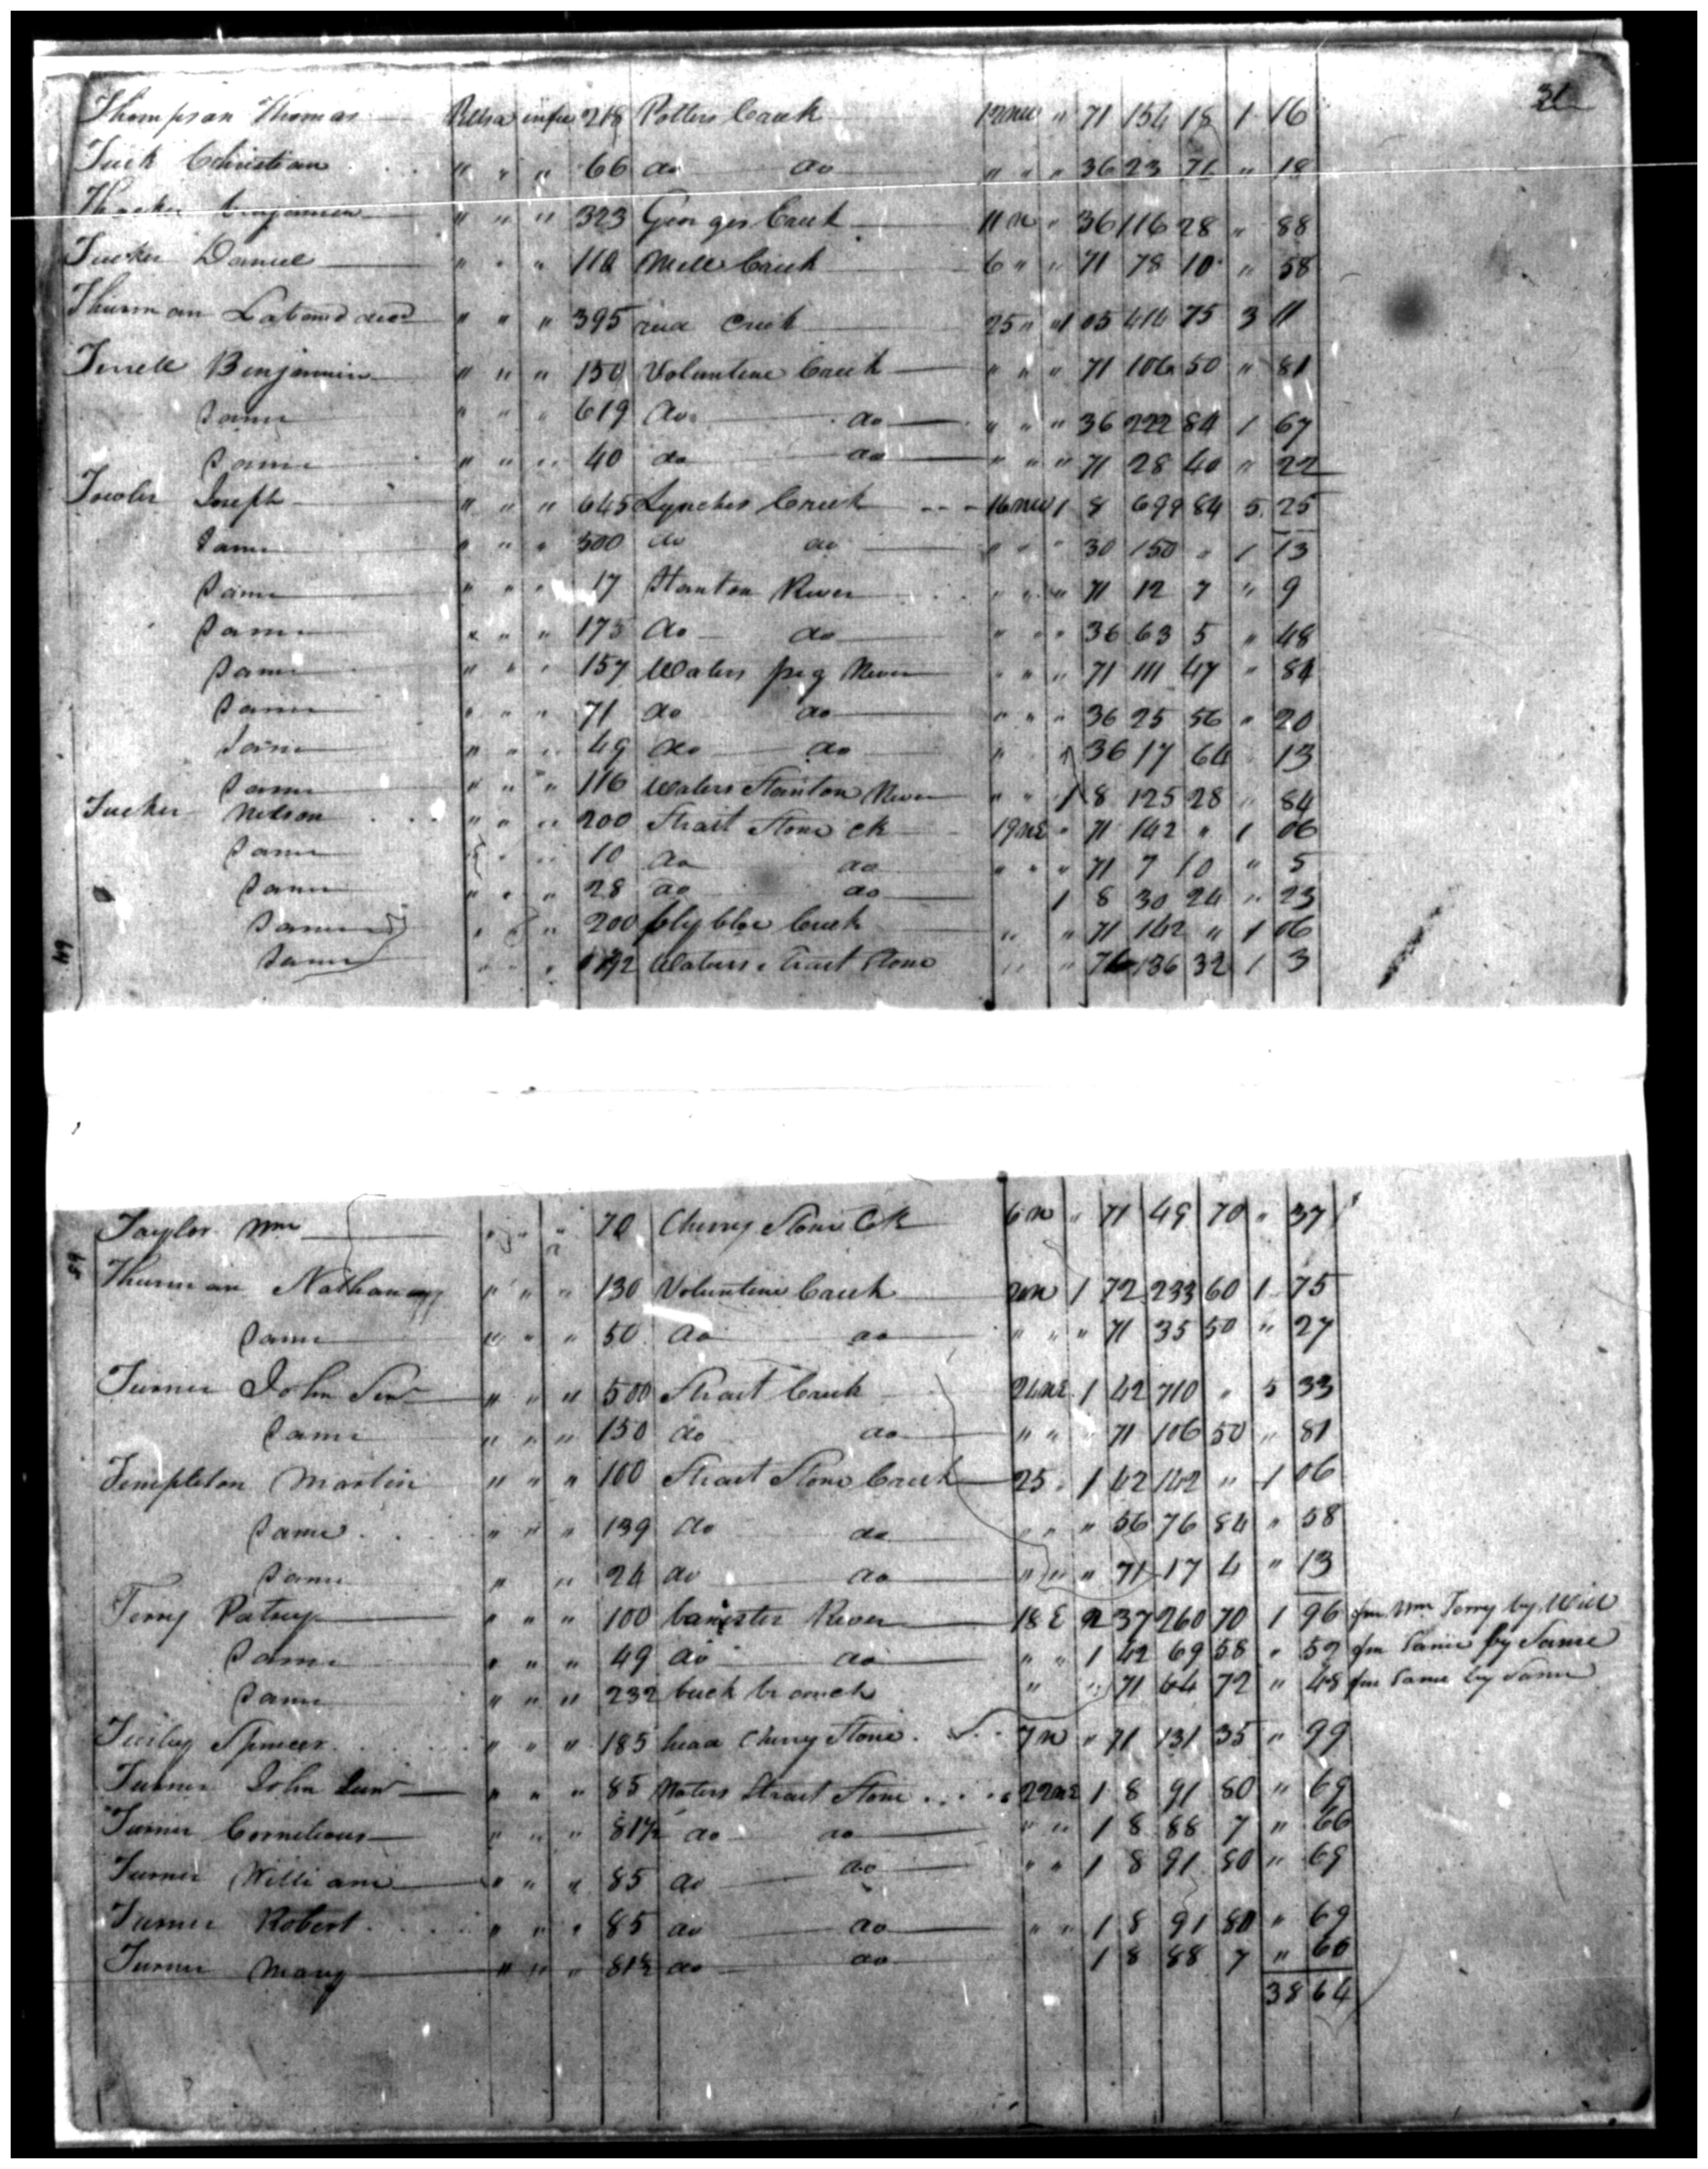 31
Thompson Thomas Pittsa in fee 218 Potters Creek 12 NW " 71 154 18 1 16
Tuck Christian " " " 66 do do " " " 36 23 76 " 18
Thacker Benjamin " " " 323 Georges Creek 11 N " 36 116 28 " 88
Tucker Daniel " " " 110 Mill Creek 6 " " 71 78 10 " 58
Thurman dec'd " " " 395 Creek 25 " 1 05 414 75 3 11
Terrell Benjamin " " " 150 Voluntine Creek " " " 71 106 50 " 81
Same " " " 619 do do " " " 36 222 84 1 67
Same " " " 40 do do " " " 71 28 40 " 22
Towler Joseph " " " 645 Lynches Creek 16 NW 1 8 699 84 5 25
Same " " " 500 do do " " " 30 150 " 1 13
Same " " " 17 Stanton River " " " 71 12 7 " 9
Same " " " 175 do do " " " 36 63 5 " 48
Same " " " 157 Waters pig River " " " 71 111 47 " 84
Same " " " 71 do do " " " 36 25 56 " 20
Same " " " 49 do do " " 36 17 64 " 13
Same " " " 116 Waters Stanton River " " 1 8 125 28 " 84
Tucker Nelson " " " 200 Strait Stone ck 19 NE " 71 142 " 1 06
Same " " 10 do do " " " 71 7 10 " 5
Same " " " 28 do do 1 8 30 24 " 23
Same " " 200 Creek " " 71 142 " 1 06
Same " " " 192 Waters Strait Stone " " 71 136 32 1 3
49
Taylor Wm " " " 70 Cherry Stone Ck 6 N " 71 49 70 " 37
Thurman Nathan " " " 130 Voluntine Creek 20 N 1 72 233 60 1 75
Same " " " 50 do do " " " 71 35 50 " 27
Turner John Senr " " " 500 Strait Creek 24 NE 1 42 710 " 5 33
Same " " " 150 do do " " " 71 106 50 " 81
Templeton Martin " " " 100 Strait Stone Creek 25 " 1 42 142 " 1 06
Same " " " 139 do do " " " 56 76 84 " 58
Same " " 24 do do " " " 71 17 4 " 13
Terry Patsey " " " 100 banister River 18 E 2 37 260 70 1 96 fm Wm Terry by Will
Same " " " 49 do do " " 1 42 69 58 " 52 fm Same by Same
Same " " " 232 buck branch " " 71 64 72 " 48 fm Same by Same
Spencer " " " 185 head Cherry Stone 7 N " 71 131 35 " 99
Turner John Junr " " " 85 Waters Strait Stone 22 NE 1 8 91 80 " 69
Turner Cornelious " " " 81½ do do " " 1 8 88 7 " 66
Turner William " " " 85 do do " " 1 8 91 80 " 69
Turner Robert " " " 85 do do " " 1 8 91 80 " 69
Turner Mary " " " 81½ do do 1 8 88 7 " 66
38 64